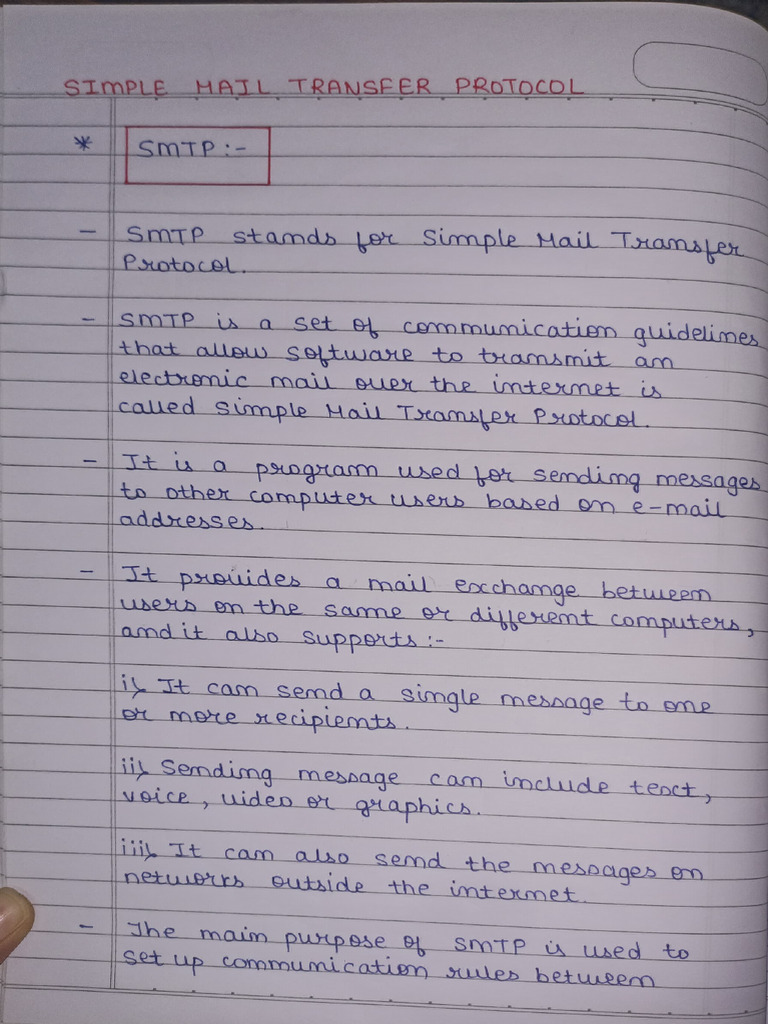 SIMPLE MAIL TRANSFER PROTOCOL
* SMTP :-
- SMTP stands for Simple Mail Transfer
Protocol.
- SMTP is a set of communication guidelines
that allow software to transmit an
electronic mail over the internet is
called Simple Mail Transfer Protocol.
- It is a program used for sending messages
to other computer users based on e-mail
addresses.
- It provides a mail exchange between
users on the same or different computers,
and it also supports :-
i) It can send a single message to one
or more recipients.
ii) Sending message can include text,
voice, video or graphics.
iii) It can also send the messages on
networks outside the internet.
- The main purpose of SMTP is used to
set up communication rules between